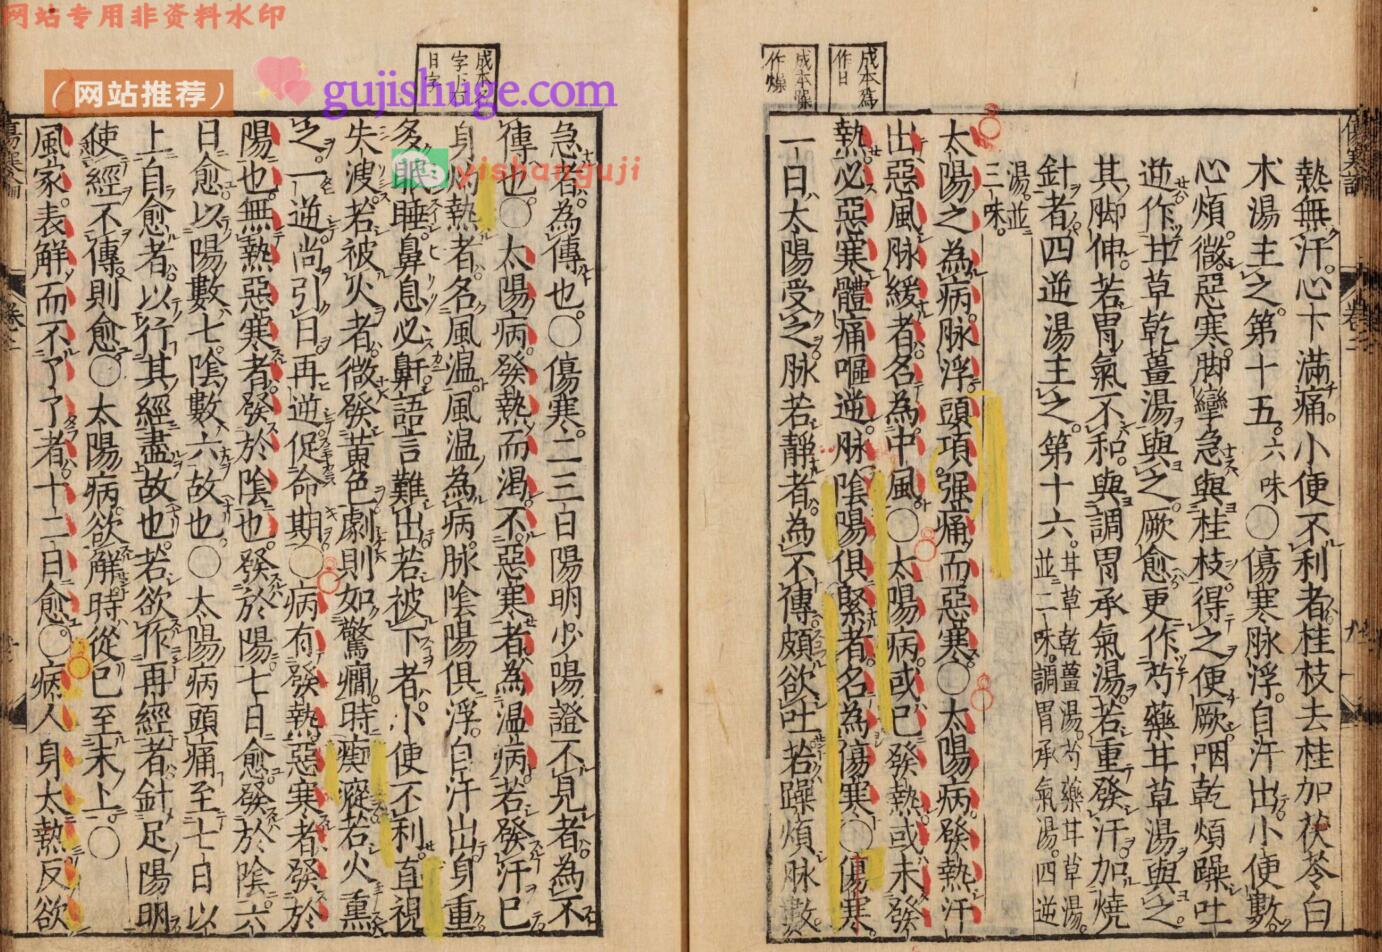 网站专用非资料水印
（网站推荐）
gujishuge.com
yishanguji
成本為
作日
成本躁
作燥
熱無汗心下滿痛小便不利者桂枝去桂加茯苓白
朮湯主之第十五六味○傷寒脉浮自汗出小便數
心煩微惡寒脚攣急與桂枝得之便厥咽乾煩躁吐
逆作甘草乾薑湯與之厥愈更作芍藥甘草湯與之
其脚伸若胃氣不和與調胃承氣湯若重發汗加燒
針者四逆湯主之第十六甘草乾薑湯芍藥甘草湯並二味調胃承氣湯四逆
湯並三味
太陽之為病脉浮頭項强痛而惡寒○太陽病發熱汗
出惡風脉緩者名為中風○太陽病或已發熱或未發
熱必惡寒體痛嘔逆脉陰陽俱緊者名為傷寒○傷寒
一日太陽受之脉若靜者為不傳頗欲吐若躁煩脉數
急者為傳也○傷寒二三日陽明少陽證不見者為不
傳也○太陽病發熱而渴不惡寒者為温病若發汗已
身灼熱者名風温風温為病脉陰陽俱浮自汗出身重
多眠睡鼻息必鼾語言難出若被下者小便不利直視
失溲若被火者微發黄色劇則如驚癇時瘈瘲若火熏
之一逆尚引日再逆促命期○病有發熱惡寒者發於
陽也無熱惡寒者發於陰也發於陽七日愈發於陰六
日愈以陽數七陰數六故也○太陽病頭痛至七日以
上自愈者以行其經盡故也若欲作再經者針足陽明
使經不傳則愈○太陽病欲解時從巳至未上○
風家表解而不了了者十二日愈○病人身太熱反欲